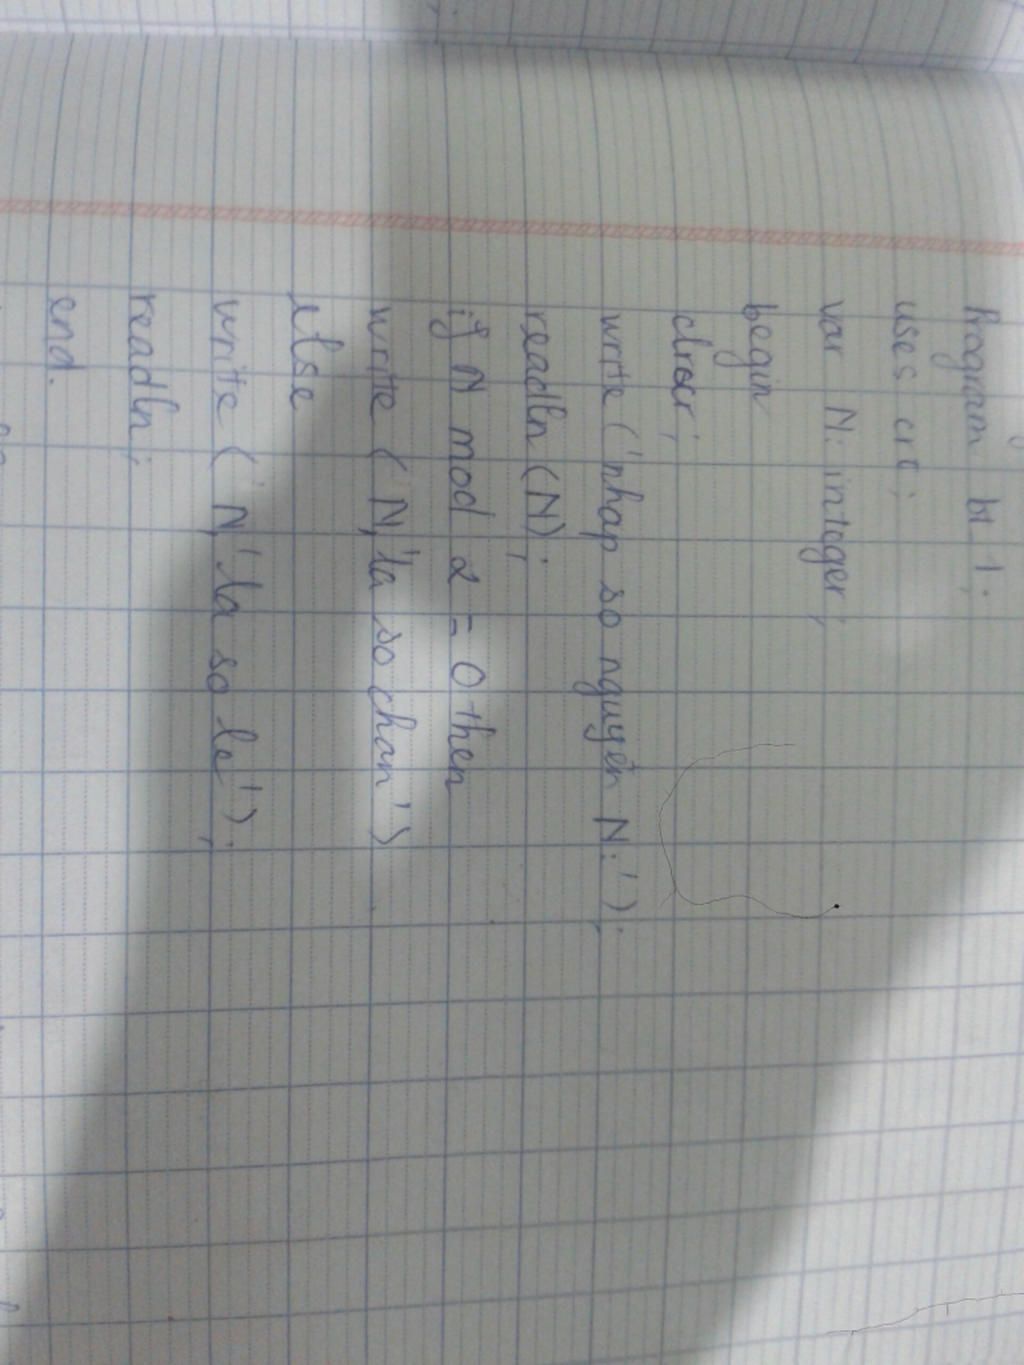 Program bt_1;
uses crt;
var N: integer;
begin
clrscr;
write ('nhap so nguyên N:');
readln (N);
if N mod 2 = 0 then
write ( N, 'la so chan')
else
write ( N, 'la so le');
readln;
end.